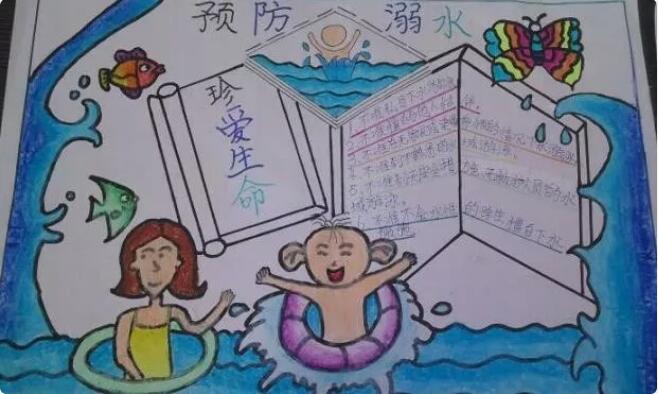 预防溺水
珍爱生命
1. 不准私自下水游泳
2. 不准擅自与他人结伴
3. 不准在无家长或老师带领的情况下游泳
4. 不准到不熟悉的水域游泳
5. 不准到无安全设施、无救护人员的水
域游泳。
6. 不准不会水性的学生擅自下水